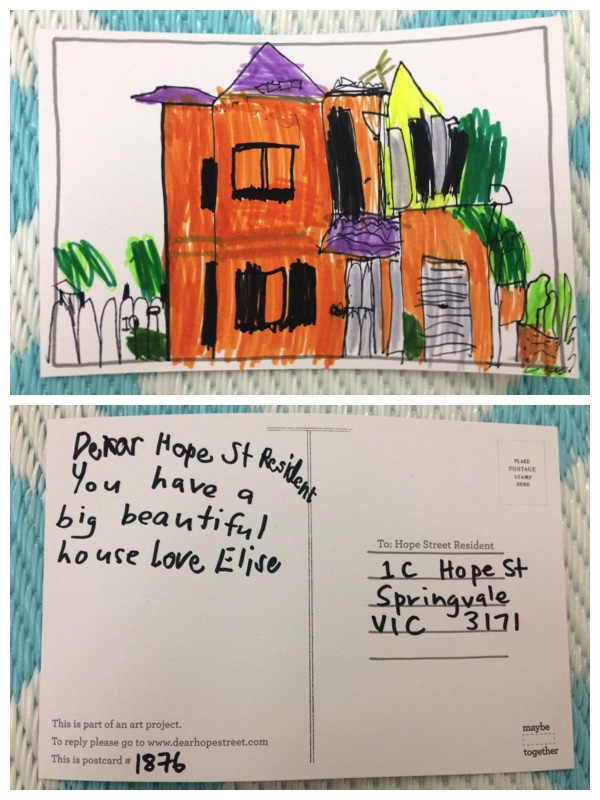 Dear Hope St Resident
You have a
big beautiful
house Love Elise
PLACE
POSTAGE
STAMP
HERE
To: Hope Street Resident
1C Hope St
Springvale
VIC 3171
This is part of an art project.
To reply please go to www.dearhopestreet.com
This is postcard # 1876
maybe
together